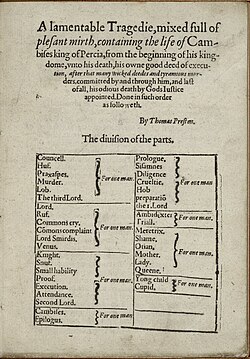 A lamentable Tragedie, mixed full of
plesant mirth, containing the life of Cam-
bises king of Percia, from the beginning of his king-
dome, vnto his death, his owne good deed of execu-
tion, after that many wicked deedes and tyrannous mur-
ders, committed by and through him, and last
of all, his odious death by Gods Iustice
appointed. Done in such order
as followeth.
By Thomas Preston.
The diuision of the parts.
Councell.
Huf.
Praxaspes.
Murder.
Lob.
The third Lord.
For one man.
Lord.
Ruf.
Commons cry.
Cōmons complaint
Lord Smirdis.
Venus.
For one man.
Knight.
Snuf.
Small hability
Proof.
Execution.
Attendance.
Second Lord.
For one man.
Cambises.
Epilogus.
For one man.
Prologue.
Sisamnes
Diligence
Crueltie.
Hob
preparatiō
the 1. Lord
For one man.
Ambidexter
Triall.
For one man.
Meretrix.
Shame.
Otian.
Mother.
Lady.
Queene.
For one man.
Yong child
Cupid.
For one man.